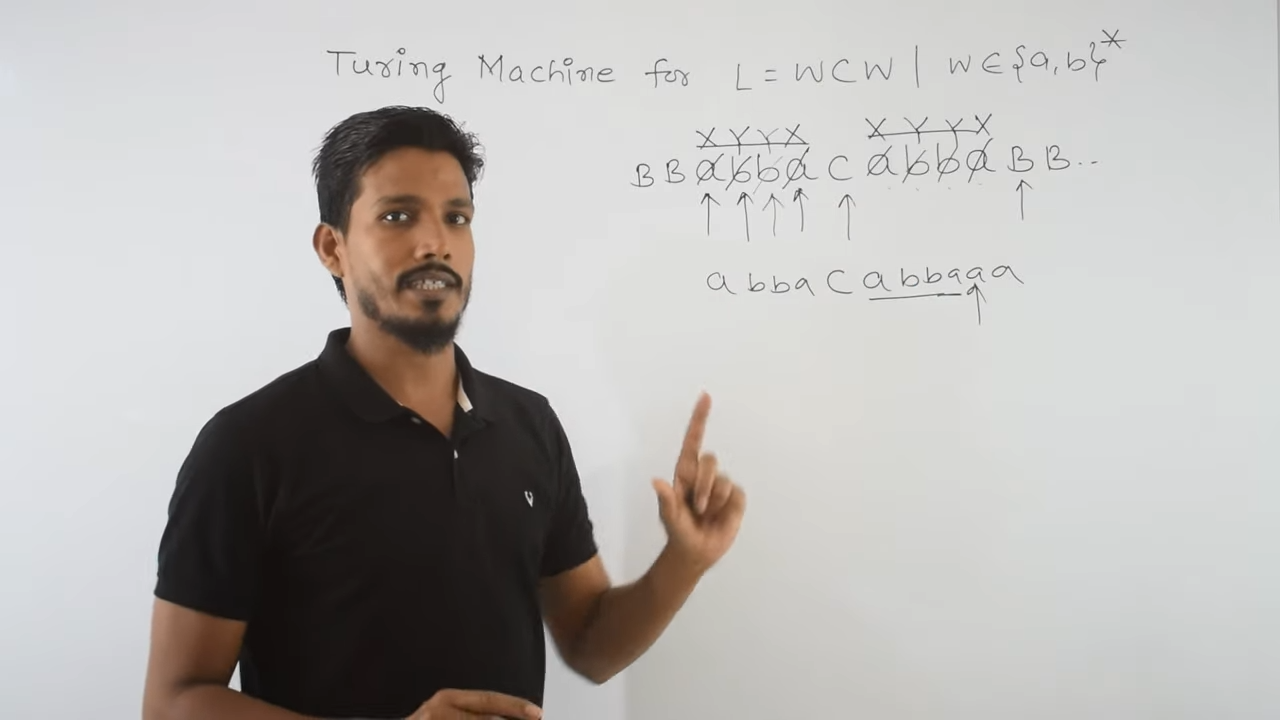 Turing Machine for L = WCW | W ∈ {a, b}*
X Y Y X X Y Y X
B B a b b a C a b b a B B ..
a b b a C a b b a a a